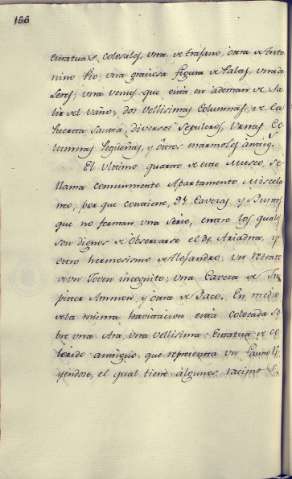 166
Estatuas colosales, una de trajano, otra de Anto
nino Pio; una graciosa figura de Palas, una de
Seres; una Venus, que está en ademan de sa
lir del vaño, dos vellisimas Columnas, de la
huerta Santa, diversos Sepulcros, Urnas, Co
lumnas pequeñas, y otros marmoles antig.
El Ultimo quarto de este Museo, se
llama comunmente Apartamento Miscela
neo, por que contiene, 94 Caveras, y Juntas
que no forman una Serie, entre las quales
son dignos de observarse el de Ariadna, y
otro hermosisimo de Alejandro. Un retrato
de un Joven incognito; Una Cavera de Ju
piter Ammon, y otra de Baco. En medio
de la misma havitacion está colocada so
bre una Ara, una vellisima Estatua de co
lorido antiguo, que representa un Fauno ri
yendose, el qual tiene algunos racimos